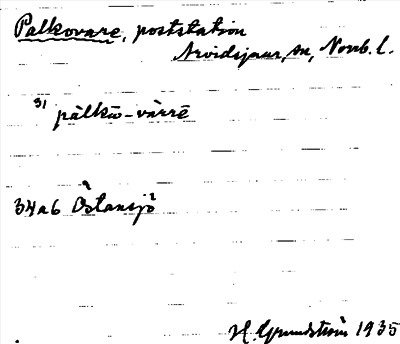 Palkovare, poststation
Arvidsjaur, sn, Norrb. l.
31 pàlkō-vàrrē
34a6 Östansjö
H. Grundström 1935